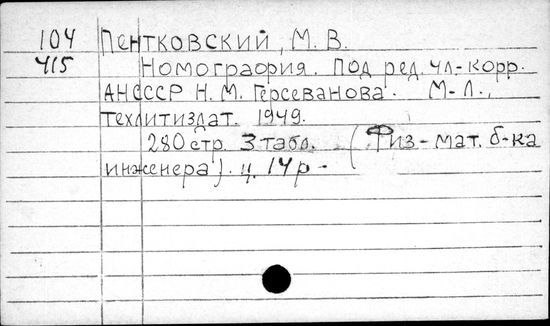 104 Пентковский, М. В.
415 Номография. Под ред. чл-корр.
АНСССР Н. М. Герсеванова. М-Л.,
Техлитиздат. 1949.
280 стр. 3 табл. (Физ-мат. б-ка
инженера). ц. 14 р -